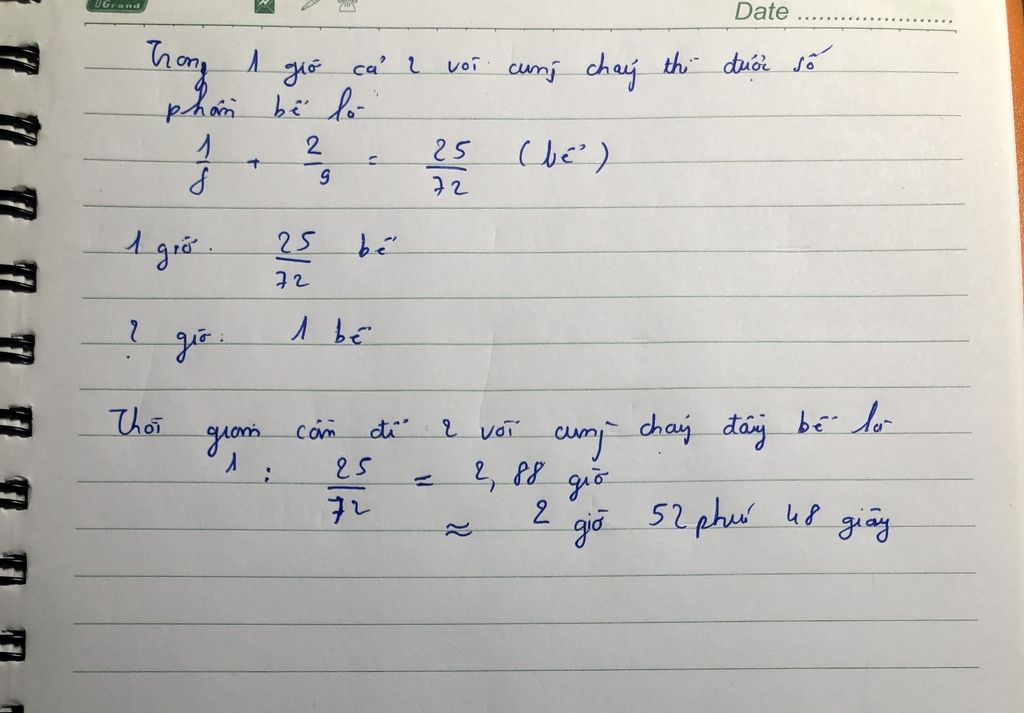 UGrand
Date
Trong 1 giờ cả 2 vòi cùng chảy thì được số
phần bể là
1/8 + 2/9 = 25/72 (bể)
1 giờ. 25/72 bể
? giờ: 1 bể
Thời gian cần để 2 vòi cùng chảy đầy bể là
1 : 25/72 = 2,88 giờ
≈ 2 giờ 52 phút 48 giây